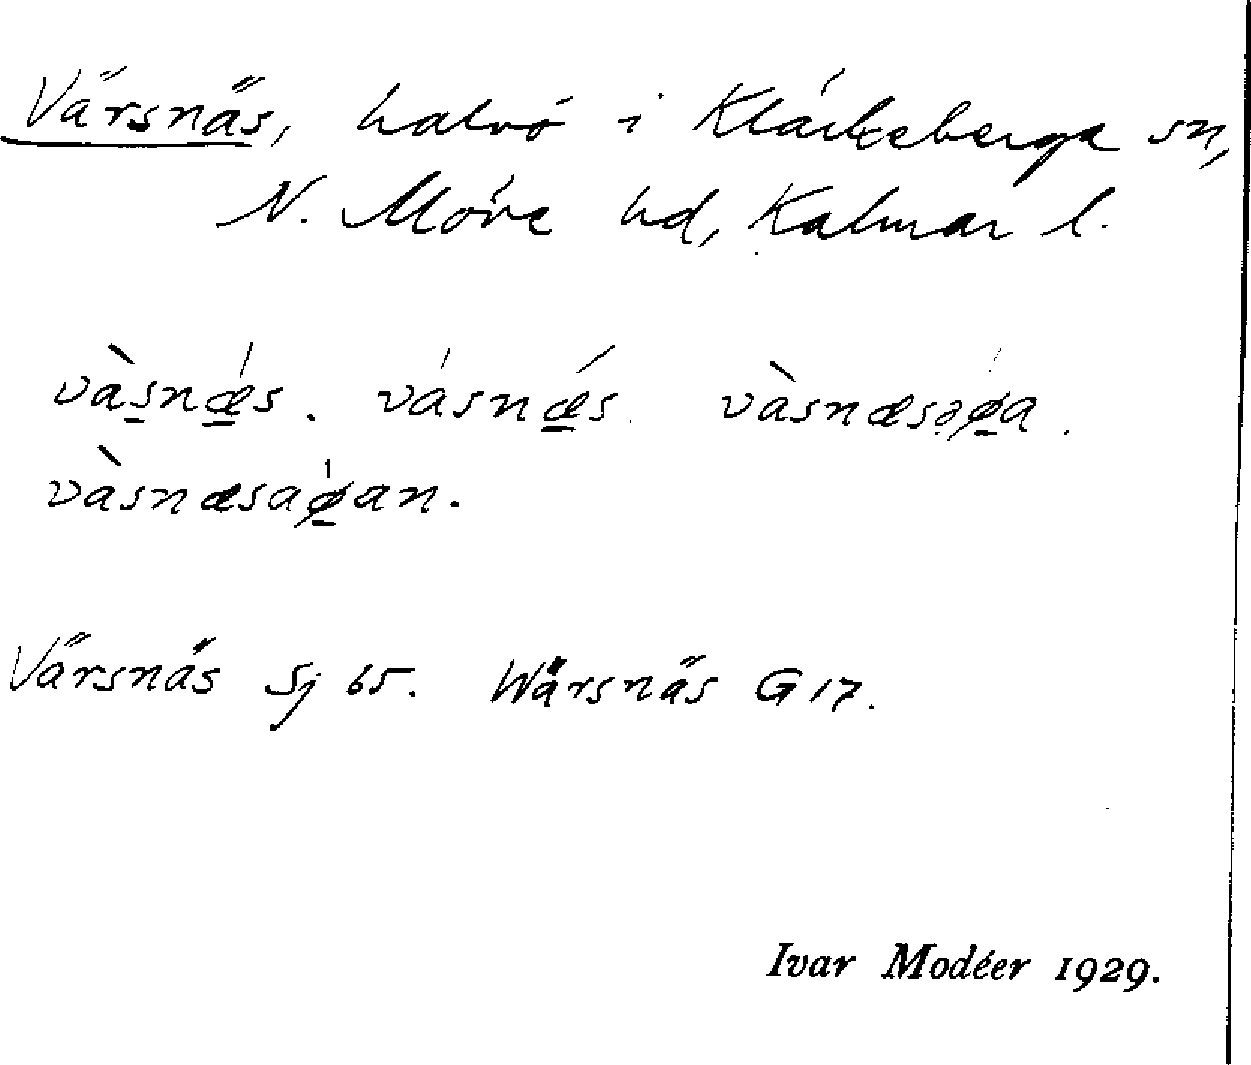 Värsnäs, halvö i Kläckeberga sn,
N. Möre hd, Kalmar l.
vàsnǽs. vásnǽs. vàsnæsəǿ̨a.
vàsnæsaǿan.
Värsnäs Sj 65. Wärsnäs G 17.
Ivar Modéer 1929.